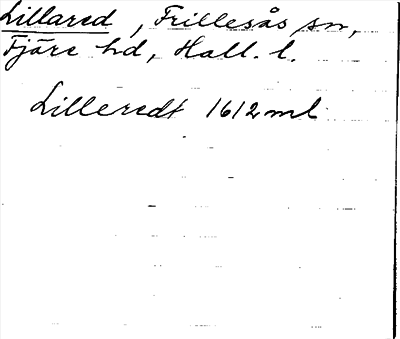 Lillared, Frillesås sn,
Fjäre hd, Hall. l.
Lilleredt 1612 ml